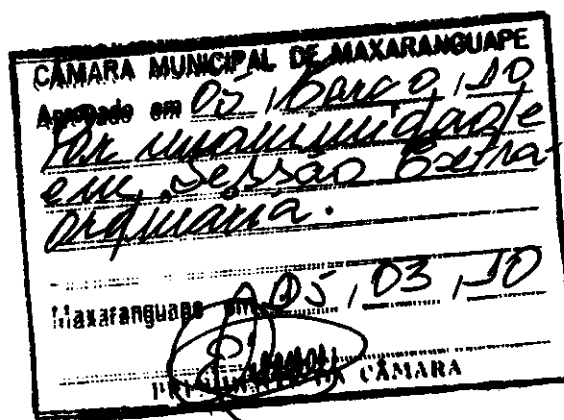 CÂMARA MUNICIPAL DE MAXARANGUAPE
Aprovado em 05 / Março / 10
Por unanimidade
em Sessão Extra-
ordinária.
Maxaranguape em 05 / 03 / 10
CÂMARA